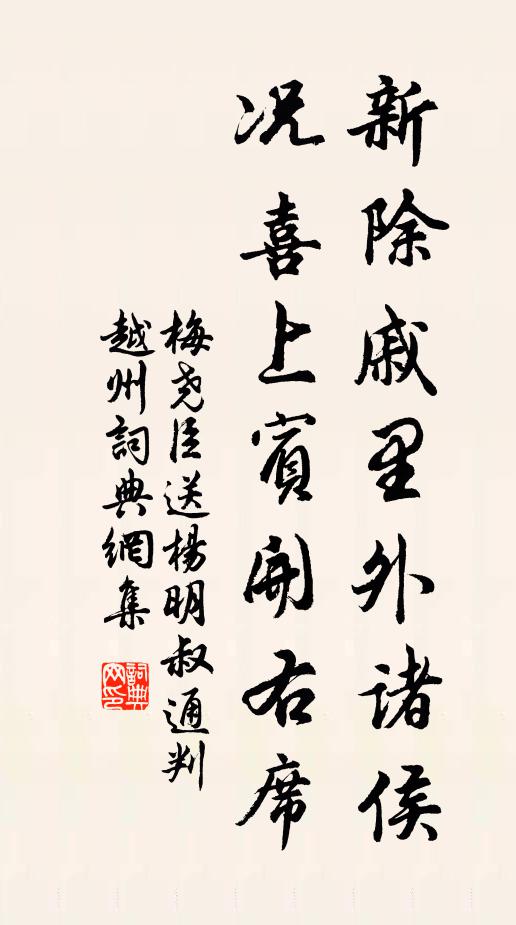 新除戚里外諸侯
况喜上賓開右席
梅堯臣送楊明叔通判
越州詞典網集
詞典
网印